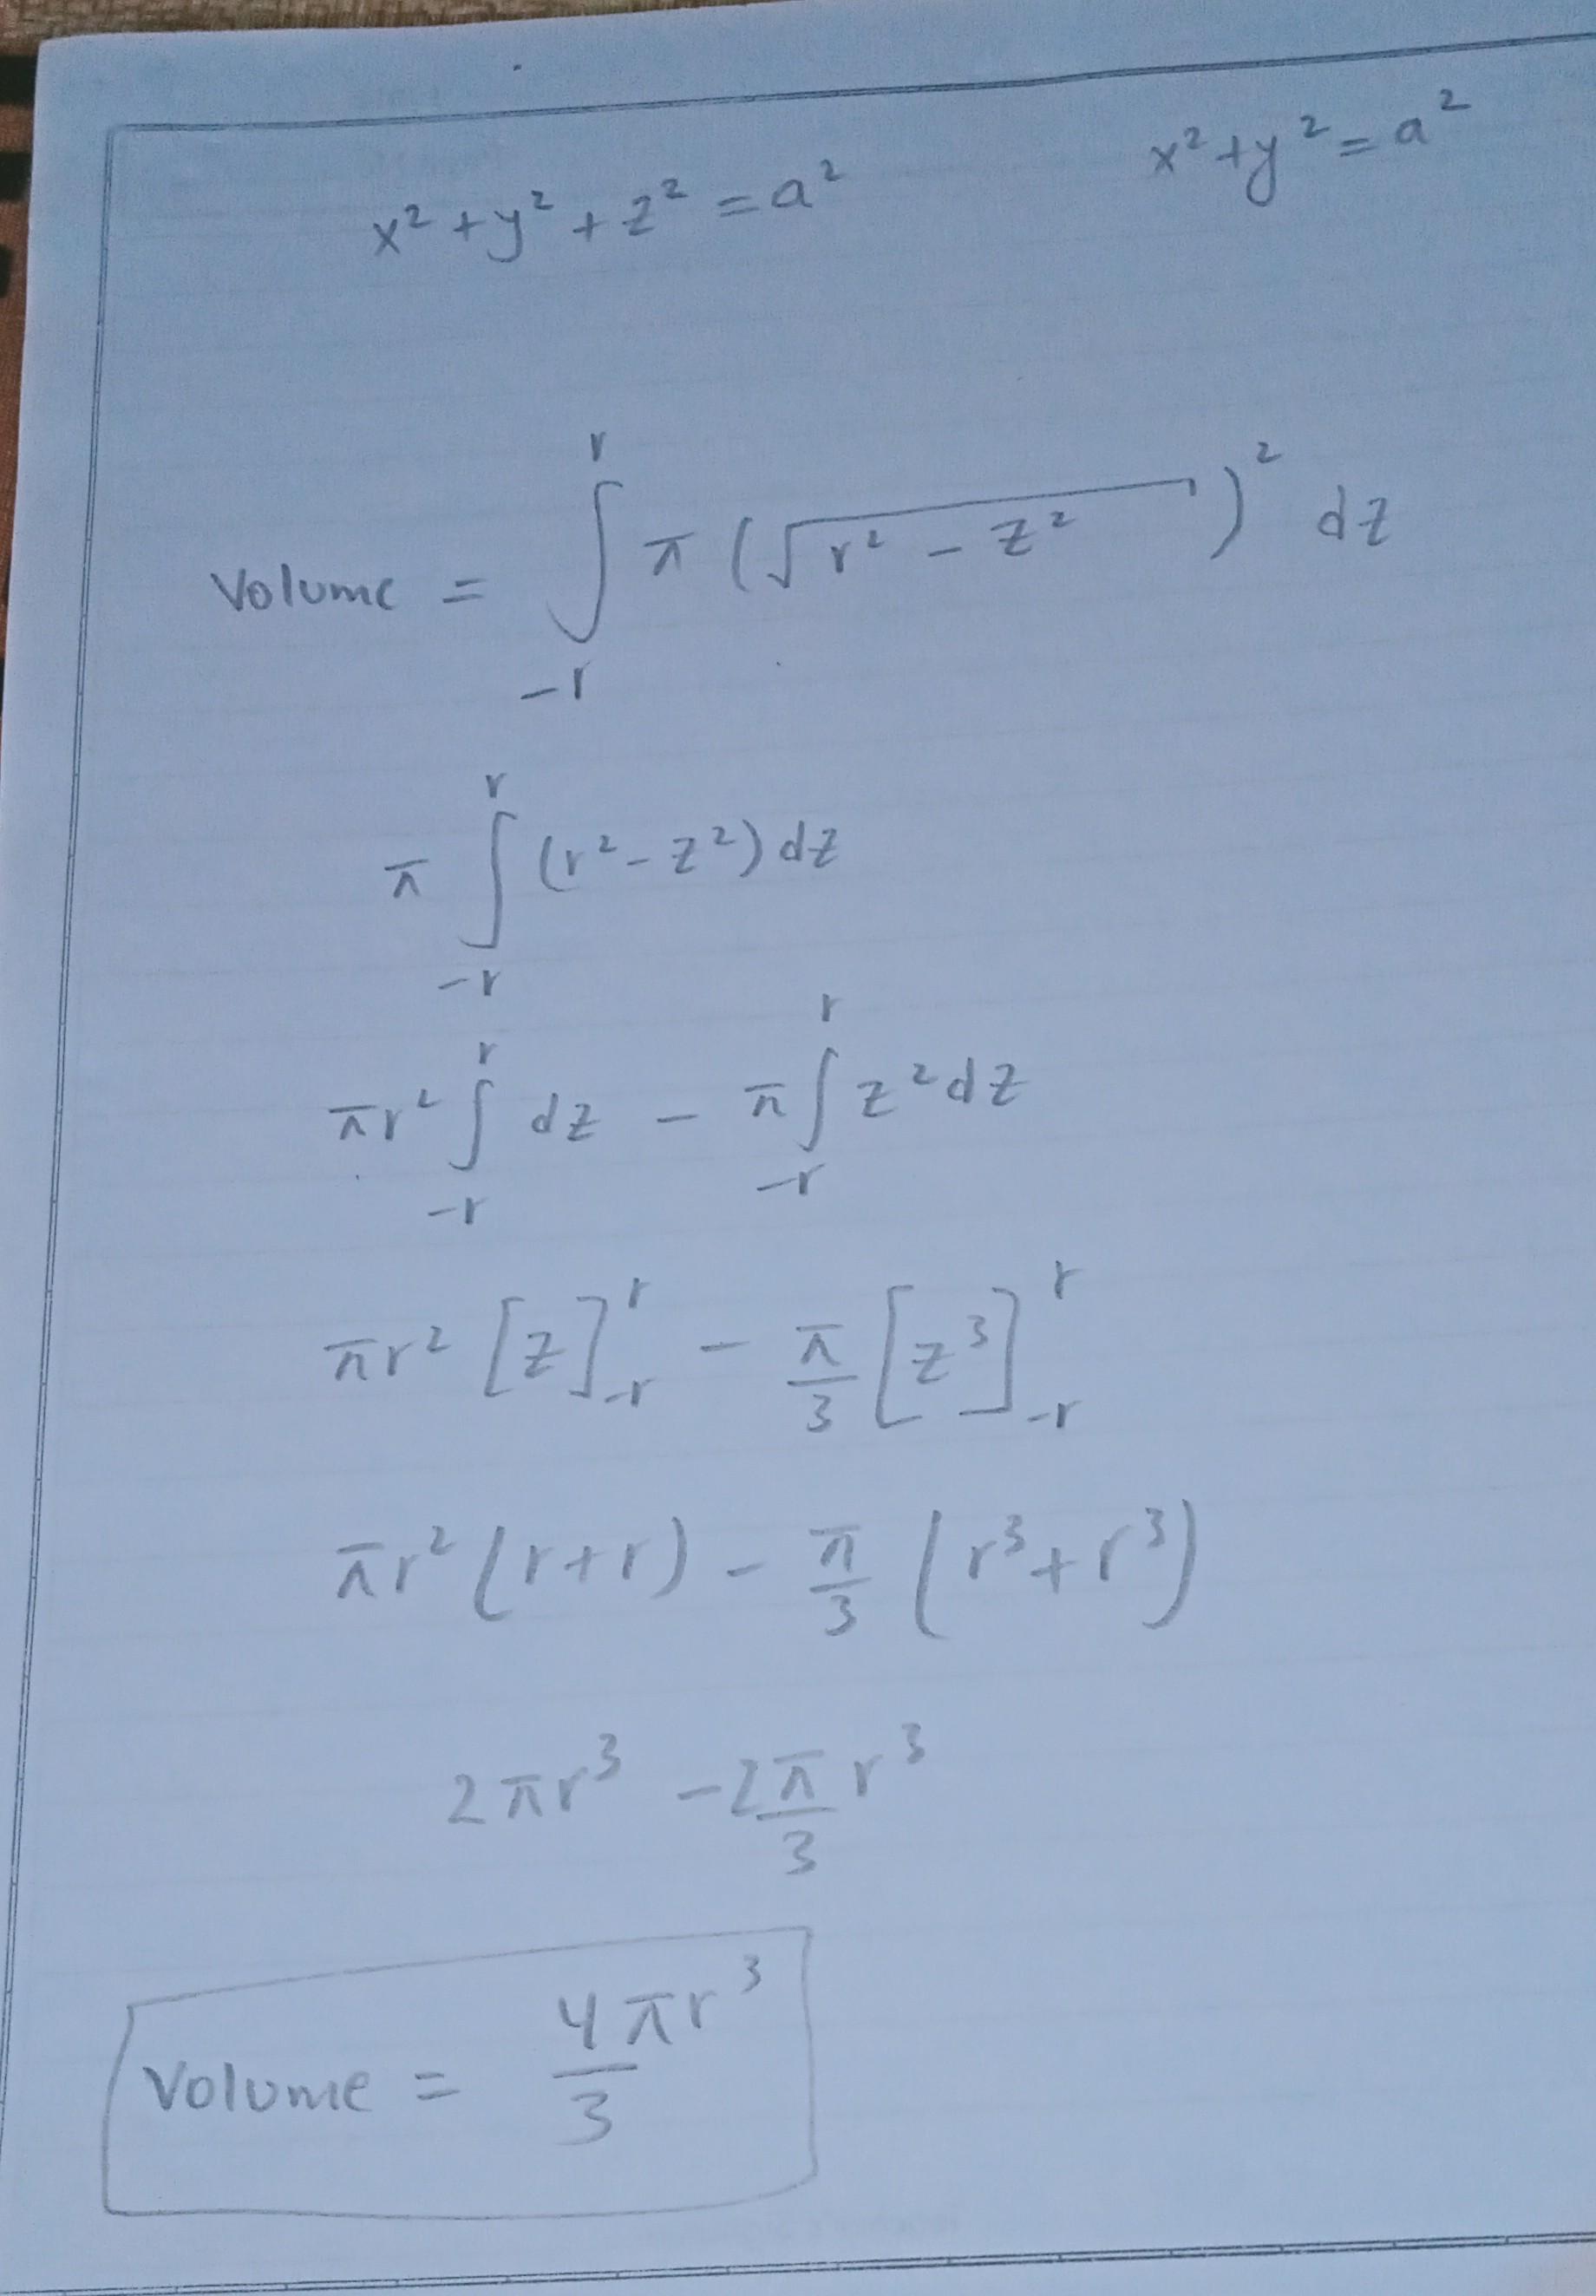 x² + y² + z² = a²    x² + y² = a²
Volume = ∫_{-r}^{r} π (√(r² - z²))² dz
π ∫_{-r}^{r} (r² - z²) dz
πr² ∫_{-r}^{r} dz - π ∫_{-r}^{r} z² dz
πr² [z]_{-r}^{r} - π/3 [z³]_{-r}^{r}
πr² (r + r) - π/3 (r³ + r³)
2πr³ - 2π/3 r³
Volume = 4πr³/3